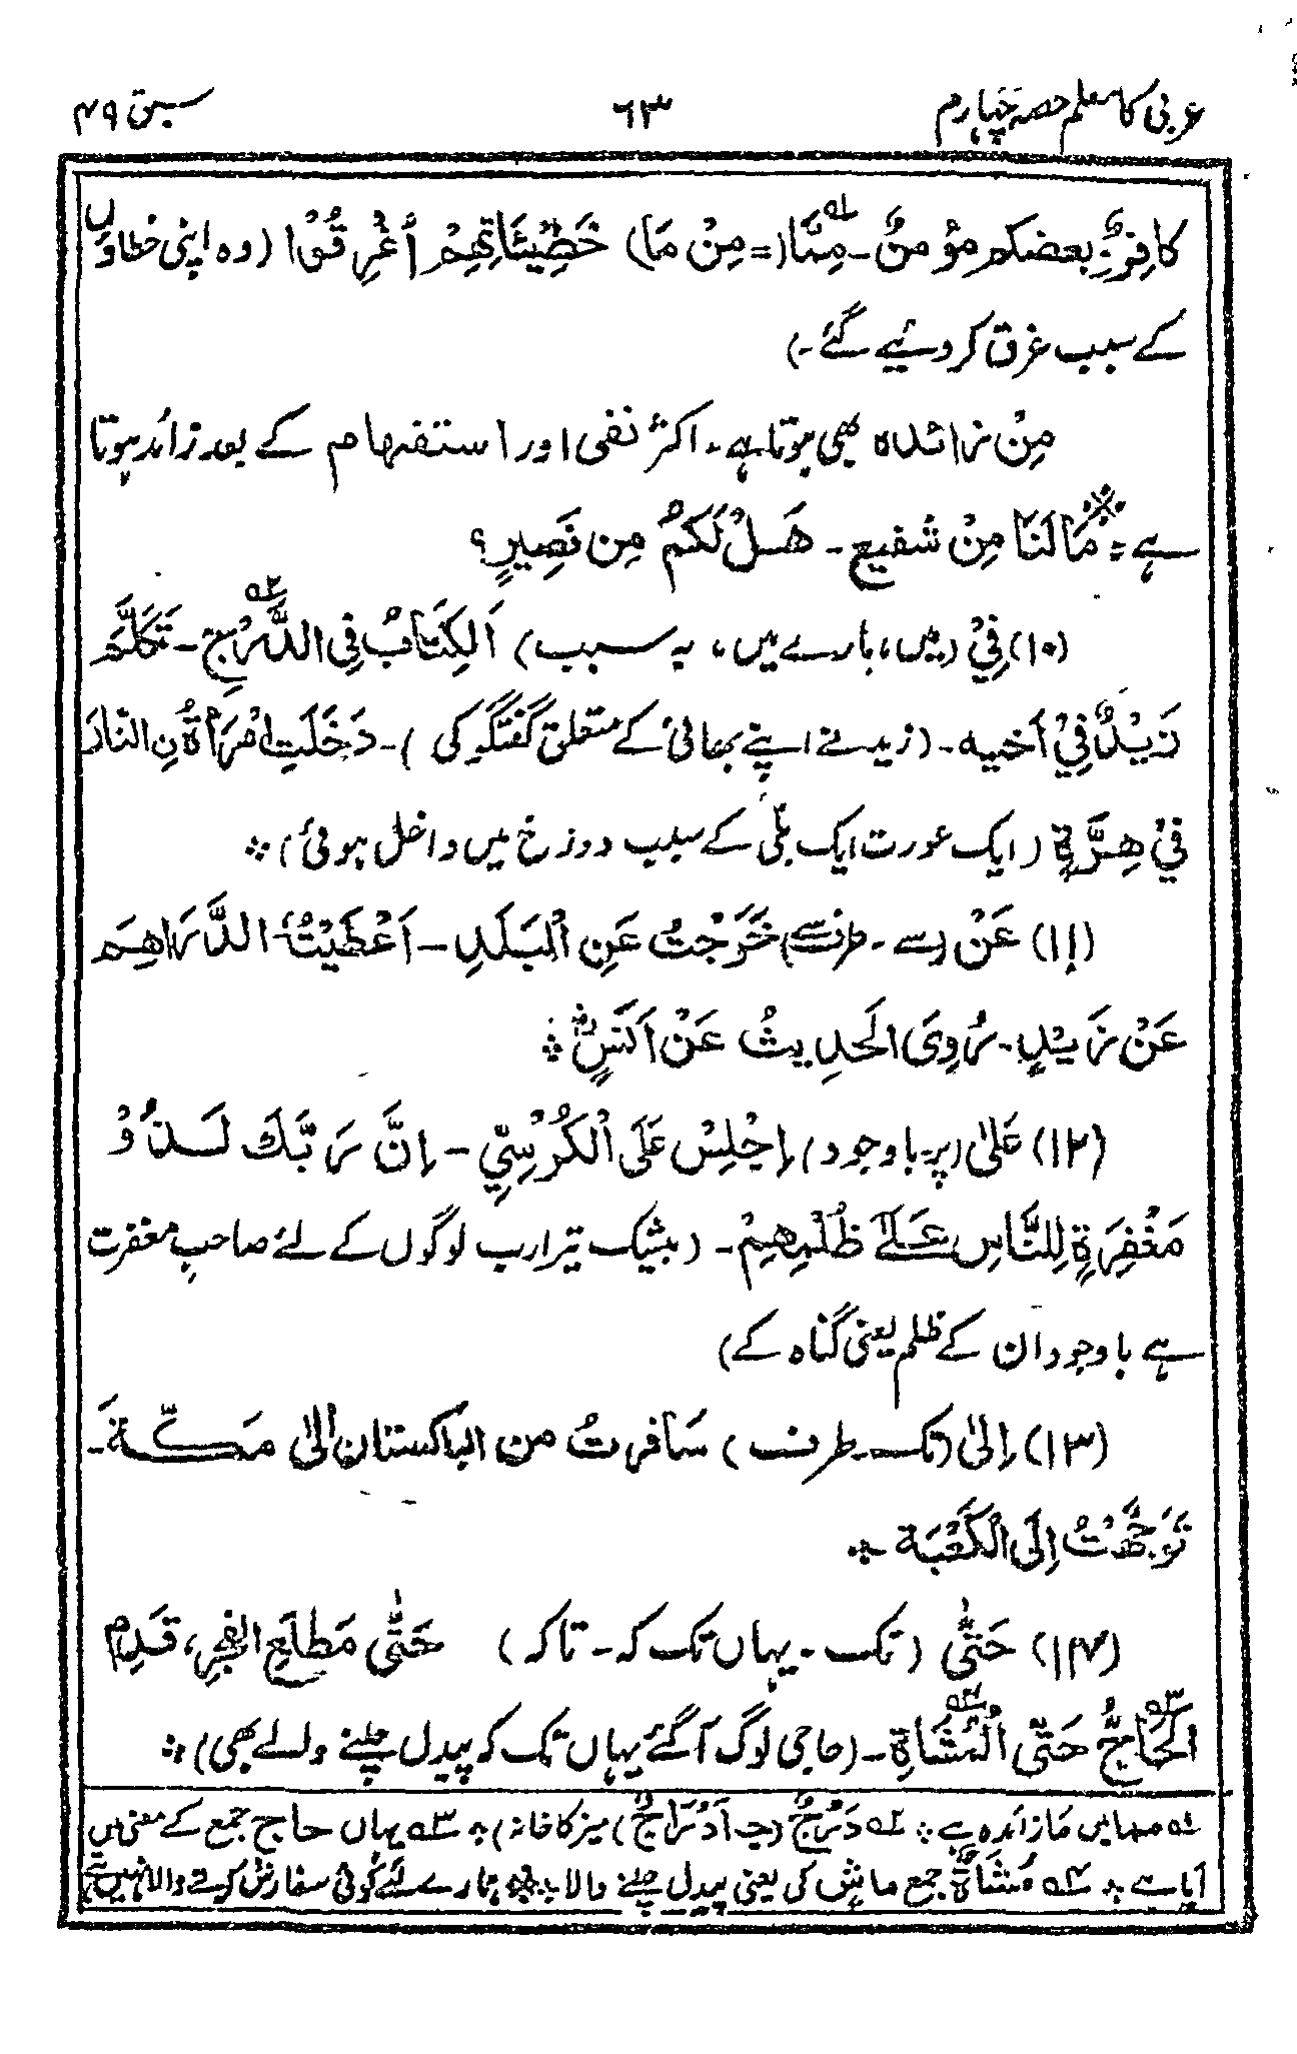 عربی کا معلم حصہ چہارم ۶۳ سبق ۴۹
كافِرٌ وبعضكم مؤمنٌ ـ مِمَّا۱ (= مِنْ مَا) خَطِيْئَاتِهِمْ اُغْرِقُوْا (وہ اپنی خطاؤں
کے سبب غرق کر دئیے گئے۔)
مِنْ زائدہ بھی ہوتا ہے۔ اکثر نفی اور استفہام کے بعد زائد ہوتا
ہے: مَا لَنَا مِنْ شفيعٍ ـ هَلْ لَكُمْ مِن نَصِيرٍ؟
(۱۰) فِيْ (میں، بارے میں، بہ سبب) اَلكِتَابُ فِي الدُّرْجِ۲ ـ تَكَلَّمَ
زَيْدٌ فِيْ اَخيه ـ (زید نے اپنے بھائی کے متعلق گفتگو کی) ـ دَخَلَتِ امْرَأَةٌ نِ النَّارَ
فِيْ هِرَّةٍ (ایک عورت ایک بلّی کے سبب دوزخ میں داخل ہوئی) ❖
(۱۱) عَنْ (سے ۔ طرف سے) خَرَجْتُ عَنِ الْبَلَدِ ـ اَعْطَيْتُ الدَّرَاهِمَ
عَنْ زَيْدٍ ـ رُوِيَ الحَدِيثُ عَنْ اَنَسٍؓ ❖
(۱۲) عَلٰى (پر ۔ باوجود) اِجْلِسْ عَلَى الْكُرْسِيِّ ـ اِنَّ رَبَّكَ لَذُوْ
مَغْفِرَةٍ لِلنَّاسِ عَلٰى ظُلْمِهِمْ ـ (بیشک تیرا رب لوگوں کے لئے صاحبِ مغفرت
ہے باوجود ان کے ظلم یعنی گناہ کے)
(۱۳) اِلٰى (تک ۔ طرف) سَافرتُ من الباكستان اِلٰى مَكّةَ ـ
تَوَجَّهْتُ اِلَى الْكَعْبَة ❖
(۱۴) حَتّٰى (تک ۔ یہاں تک کہ ۔ تاکہ) حَتّٰى مَطلَعِ الفجرِ، قَدِم
الحَاجُّ۳ حَتَّى الْمُشَاةِ۴ ـ (حاجی لوگ آگئے یہاں تک کہ پیدل چلنے والے بھی) ❖
۱ مما میں مَا زائدہ ہے ❖ ۲ دُرْجٌ (جـ اَدْرَاجٌ) میز کا خانہ) ❖ ۳ یہاں حاج جمع کے معنی میں
آیا ہے ❖ ۴ مُشَاةٌ جمع ماشٍ کی یعنی پیدل چلنے والا ❖ ※ ہمارے لئے کوئی سفارش کرنے والا نہیں ہے